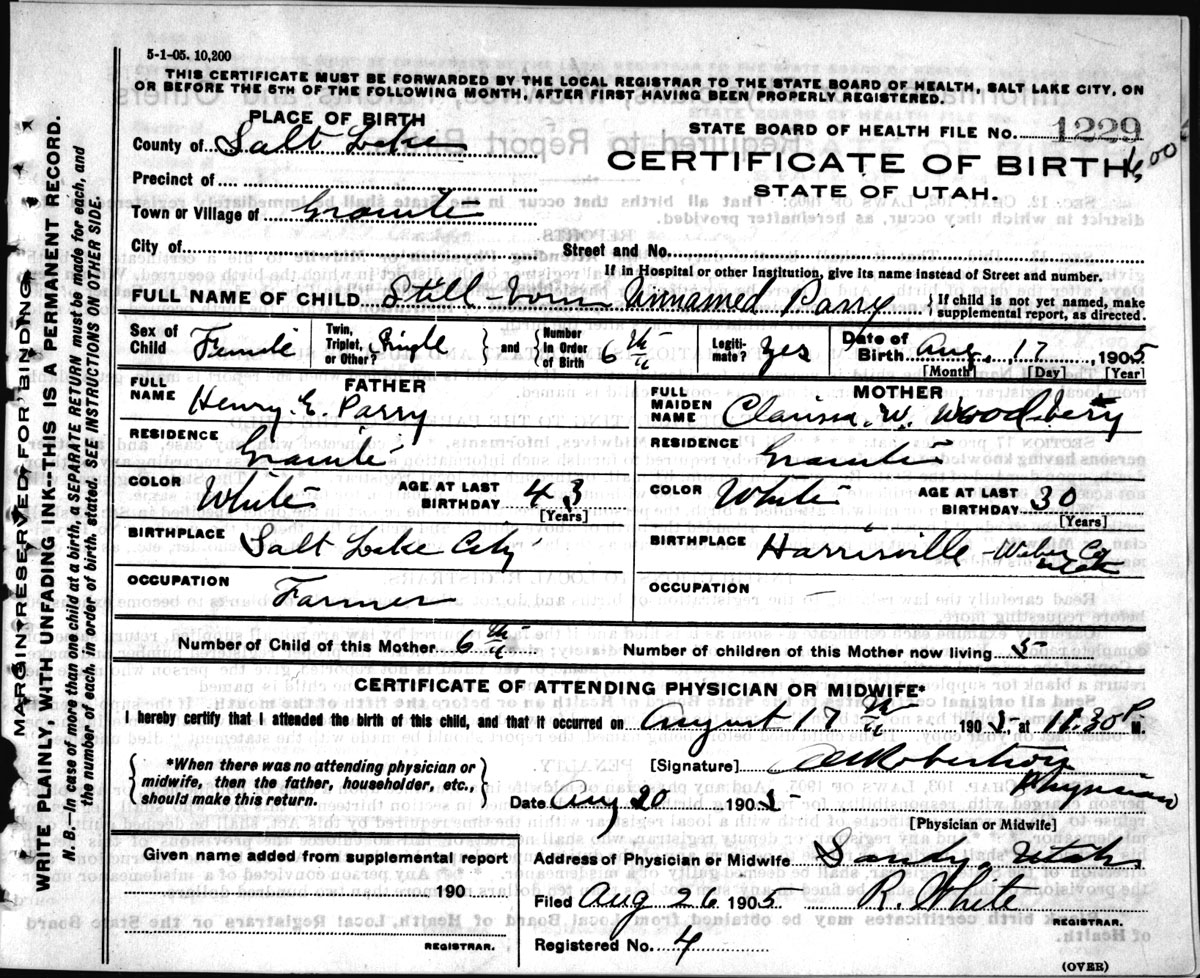 5-1-05. 10,200
THIS CERTIFICATE MUST BE FORWARDED BY THE LOCAL REGISTRAR TO THE STATE BOARD OF HEALTH, SALT LAKE CITY, ON
OR BEFORE THE 5TH OF THE FOLLOWING MONTH, AFTER FIRST HAVING BEEN PROPERLY REGISTERED.
MARGIN RESERVED FOR BINDING
WRITE PLAINLY, WITH UNFADING INK--THIS IS A PERMANENT RECORD.
N. B.--In case of more than one child at a birth, a SEPARATE RETURN must be made for each, and
the number of each, in order of birth, stated. SEE INSTRUCTIONS ON OTHER SIDE.
PLACE OF BIRTH
STATE BOARD OF HEALTH FILE No. 1229
County of Salt Lake
CERTIFICATE OF BIRTH
STATE OF UTAH.
Precinct of
Town or Village of Granite
City of Street and No.
If in Hospital or other Institution, give its name instead of Street and number.
FULL NAME OF CHILD Still-born Unnamed Parry { If child is not yet named, make supplemental report, as directed.
Sex of Child Female Twin, Triplet, or Other? Single } and { Number in Order of Birth 6th Legiti-mate? Yes Date of Birth Aug. 17 1905
[Month] [Day] [Year]
FATHER MOTHER
FULL NAME Henry E. Parry FULL MAIDEN NAME Clarissa W. Woodberry
RESIDENCE Granite RESIDENCE Granite
COLOR White AGE AT LAST BIRTHDAY 43 [Years] COLOR White AGE AT LAST BIRTHDAY 30 [Years]
BIRTHPLACE Salt Lake City BIRTHPLACE Harrisville - Weber Co Utah
OCCUPATION Farmer OCCUPATION —
Number of Child of this Mother 6th Number of children of this Mother now living 5
CERTIFICATE OF ATTENDING PHYSICIAN OR MIDWIFE*
I hereby certify that I attended the birth of this child, and that it occurred on August 17th 1905, at 11.30 P M.
{ *When there was no attending physician or
midwife, then the father, householder, etc.,
should make this return. }
[Signature] Robertson
Physician
Date Aug 20 1905
[Physician or Midwife]
Given name added from supplemental report
190
REGISTRAR.
Address of Physician or Midwife Sandy Utah
Filed Aug 26 1905 R. White
REGISTRAR.
Registered No. 4
(OVER)